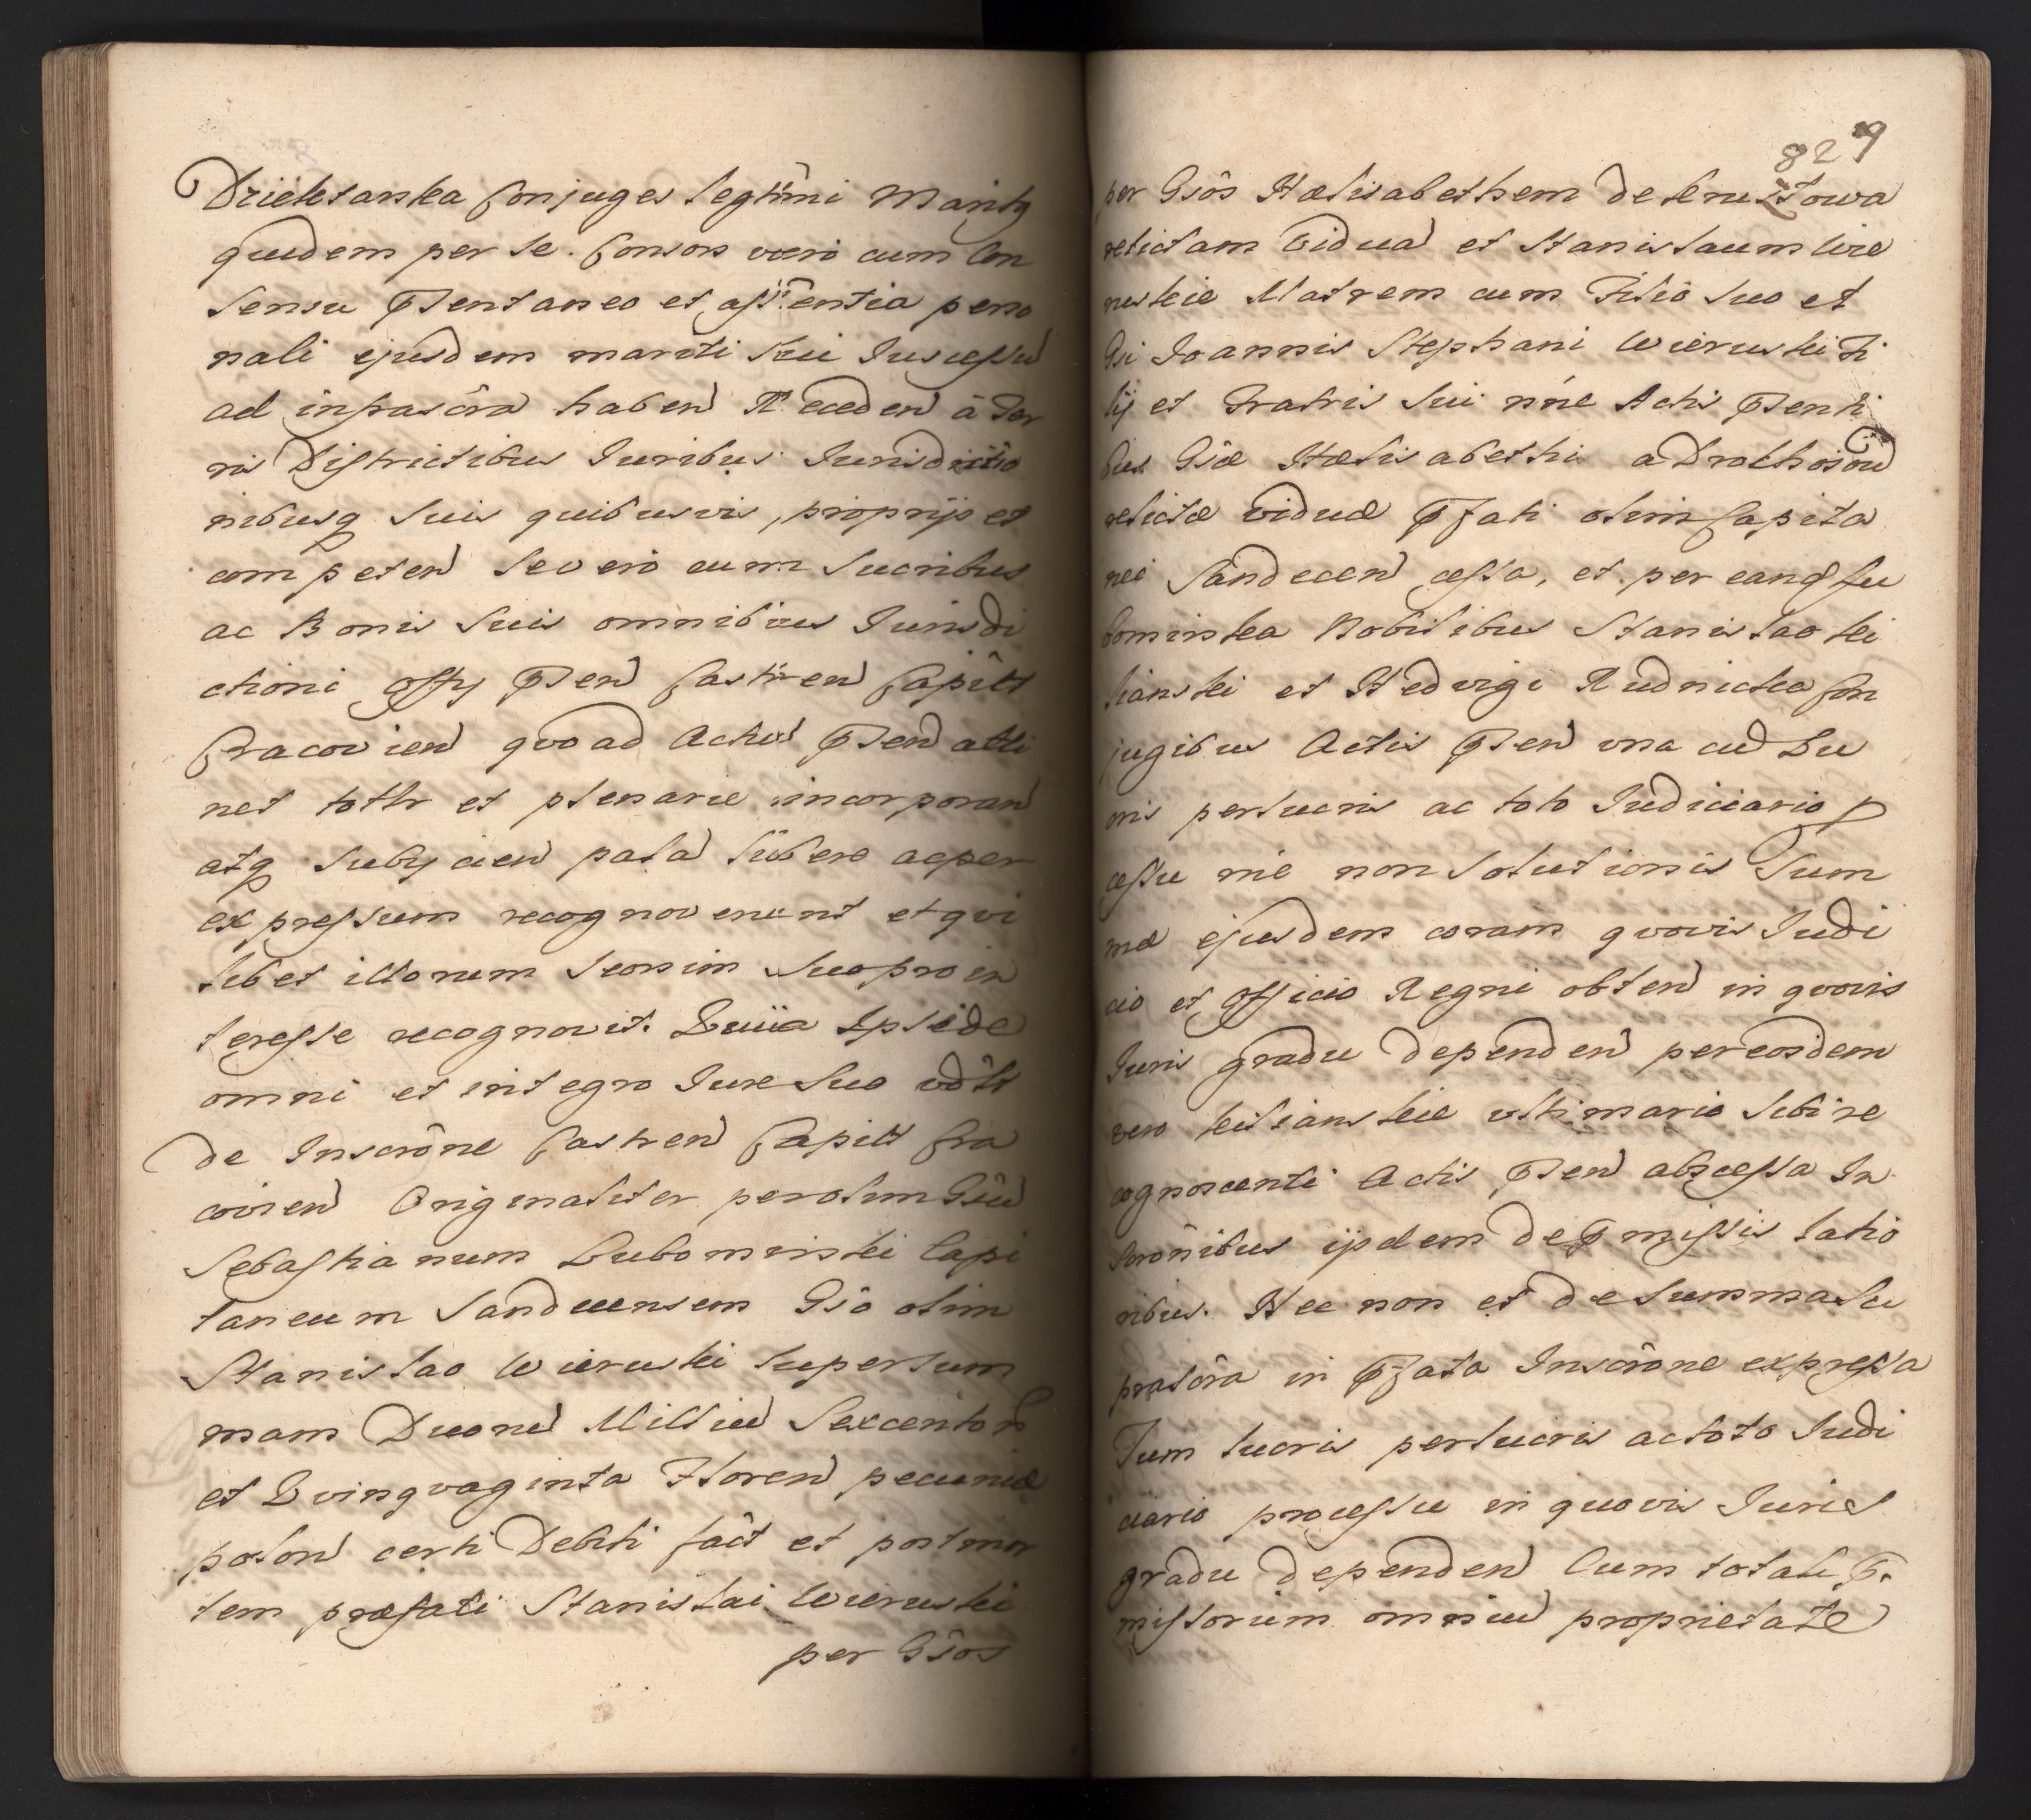 Dzieksanska Conjuges legtími Maritq
quidem per se. Consors vero cum Con
sensu pntaneo et assentia perso
nali ejusdem mariti sui Juscessu
ad infrascra haben Recceden à Ter
ris Districtibus Juribus Jurisdictio
nibusq suis quibusvis, proprijs et
competen se vero cum Sucribus
ac Bonis suis omnibus Jurisdi
ctioni Offij pnten Castren Capitt
Cracovien quoad Actum pnten atti
net tottr et plenarie incorporan
atq subijcien palá libere acper
expressum recognoverunt et qvi
libet illorum seorsim suo pro in
teresse recognovit. Quia Ipsi de
omni et integro Jure suo vdtt
de Inscrône Castren Capitt Cra
covien Originaliter per olim Gsũ
Sebastianum Lubomirski Capi
taneum Sandecensem Gso olim
Stanislao Wieruski super sum
mam Duorũ Milliũ Sexcentorũ
et Qvinqvaginta Floren pecuniæ
polon certi Debiti fact et post mor
tem præfati Stanislai Wieruski
per Gsos
829
per Gsos Hælisabethem de
relictam Viduã et Stanislaum Wie
ruskie Matrem cum Filio suo et
Gsi Joannis Stephani Wieruski Fi
lij et Fratris sui nne Actis pnti
bus Gsæ Hælisabethi a
relictæ viduæ pfati olim Capita
nei Sandecen cessa, et per eand Lu
bomirska Nobilibus Stanislao Ki
lianski et Hedvigi Rudnicka Con
jugibus Actis pnten vna cũ Lu
cris perlucris ac toto Judiciario p
cessu rne non solutionis Sum
mæ ejusdem coram qvovis Judi
cio et Officio Regni obten in qvovis
Juris gradu dependen per eosdem
vero Kilianskie vltimario sibi re
cognoscenti Actis pnten abcessa In
scrônibus ijsdem de pmissis latio
nibus. Nec non et de Summa su
prascra in pfata Inscrône expressa
Tum lucris perlucris ac toto Judi
ciario processu in quovis Juris
gradu dependen Cum totali p
missorum omniũ proprietate